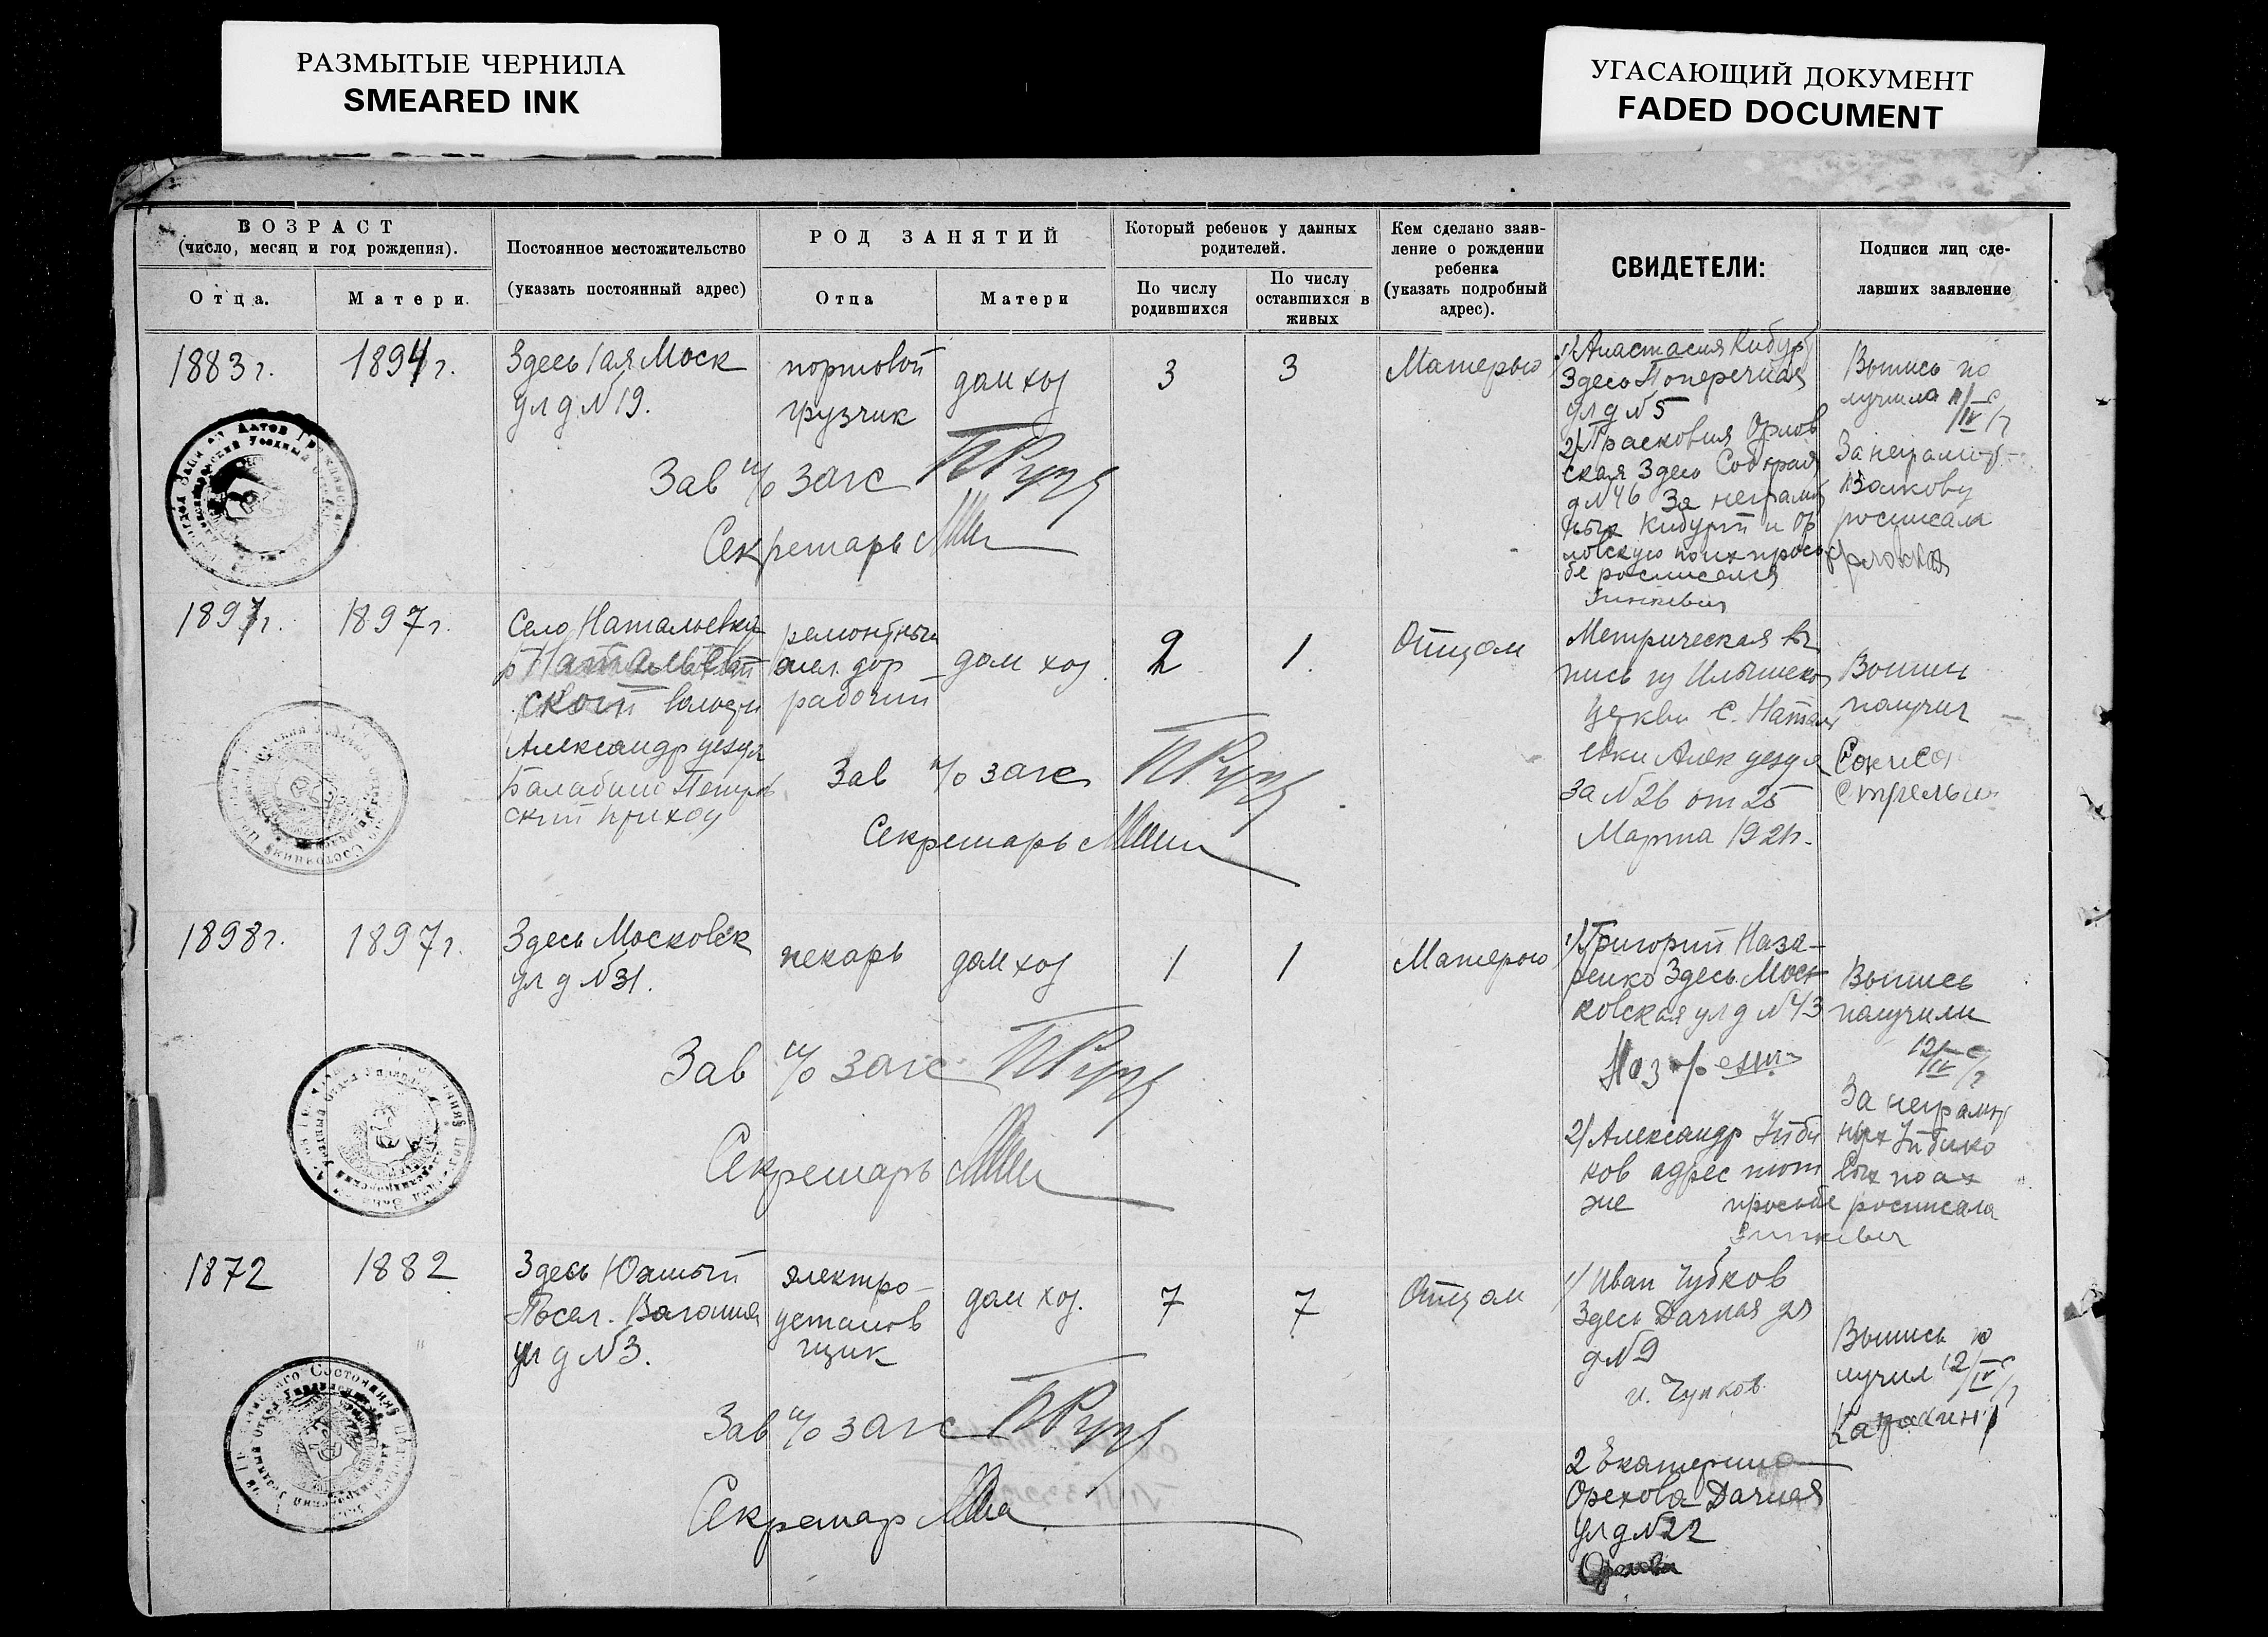 РАЗМЫТЫЕ ЧЕРНИЛА
SMEARED INK
УГАСАЮЩИЙ ДОКУМЕНТ
FADED DOCUMENT
ВОЗРАСТ
(число, месяц и год рождения).
Отца.
Матери.
Постоянное местожительство
(указать постоянный адрес)
РОД ЗАНЯТИЙ
Отца
Матери
Который ребенок у данных
родителей.
По числу
родившихся
По числу
оставшихся в
живых
Кем сделано заяв-
ление о рождении
ребенка
(указать подробный
адрес).
СВИДЕТЕЛИ:
Подписи лиц сде-
лавших заявление
1883 г.
1894 г.
Здесь 1ая Моск
ул д №19.
портовой
грузчик
дом хоз
3
3
Матерью
1) Анастасия
Здесь Поперечная
ул д №5
2) Прасковия Орлов
ская Здесь
д №46 За неграмот
ных и Ор
ловскую по их прось
бе росписался
Зинкевич
Выпись по
лучила
За неграмот-
Волкову
росписала
Зав п/о загс
Секретарь
1897 г.
1897 г.
Село Натальевка
ской волости
Александр уезда
Петров
ский приход
ремонтный
жел. дор
рабочий
дом хоз
2
1.
Отцом
Метрическая вы
пись из
церкви с. Наталь
евки Алек уезда
за №26 от 25
Марта 192 г.
Выпись
получил
Зав п/о загс
Секретарь
1898 г.
1897 г.
Здесь Московск
ул д №31.
пекарь
дом хоз
1
1
Матерью
1) Григорий Наза-
ренко Здесь Моск
ковская ул д №43
2) Александр
ков адрес тот
же
Выпись
получили
12/IV
За неграмот
ных
просьбе росписала
Зинкевич
Зав п/о загс
Секретарь
1872
1882
Здесь Южный
Посел. Вагонная
ул д №3.
электро-
установ
щик
дом хоз.
7
7
Отцом
1) Иван Чубков
Здесь Дачная ул
д №9
и. Чупков
2 Екатерина
Орехова Дачная
ул д №22
Выпись по
лучил 12/IV
Зав п/о загс
Секретар